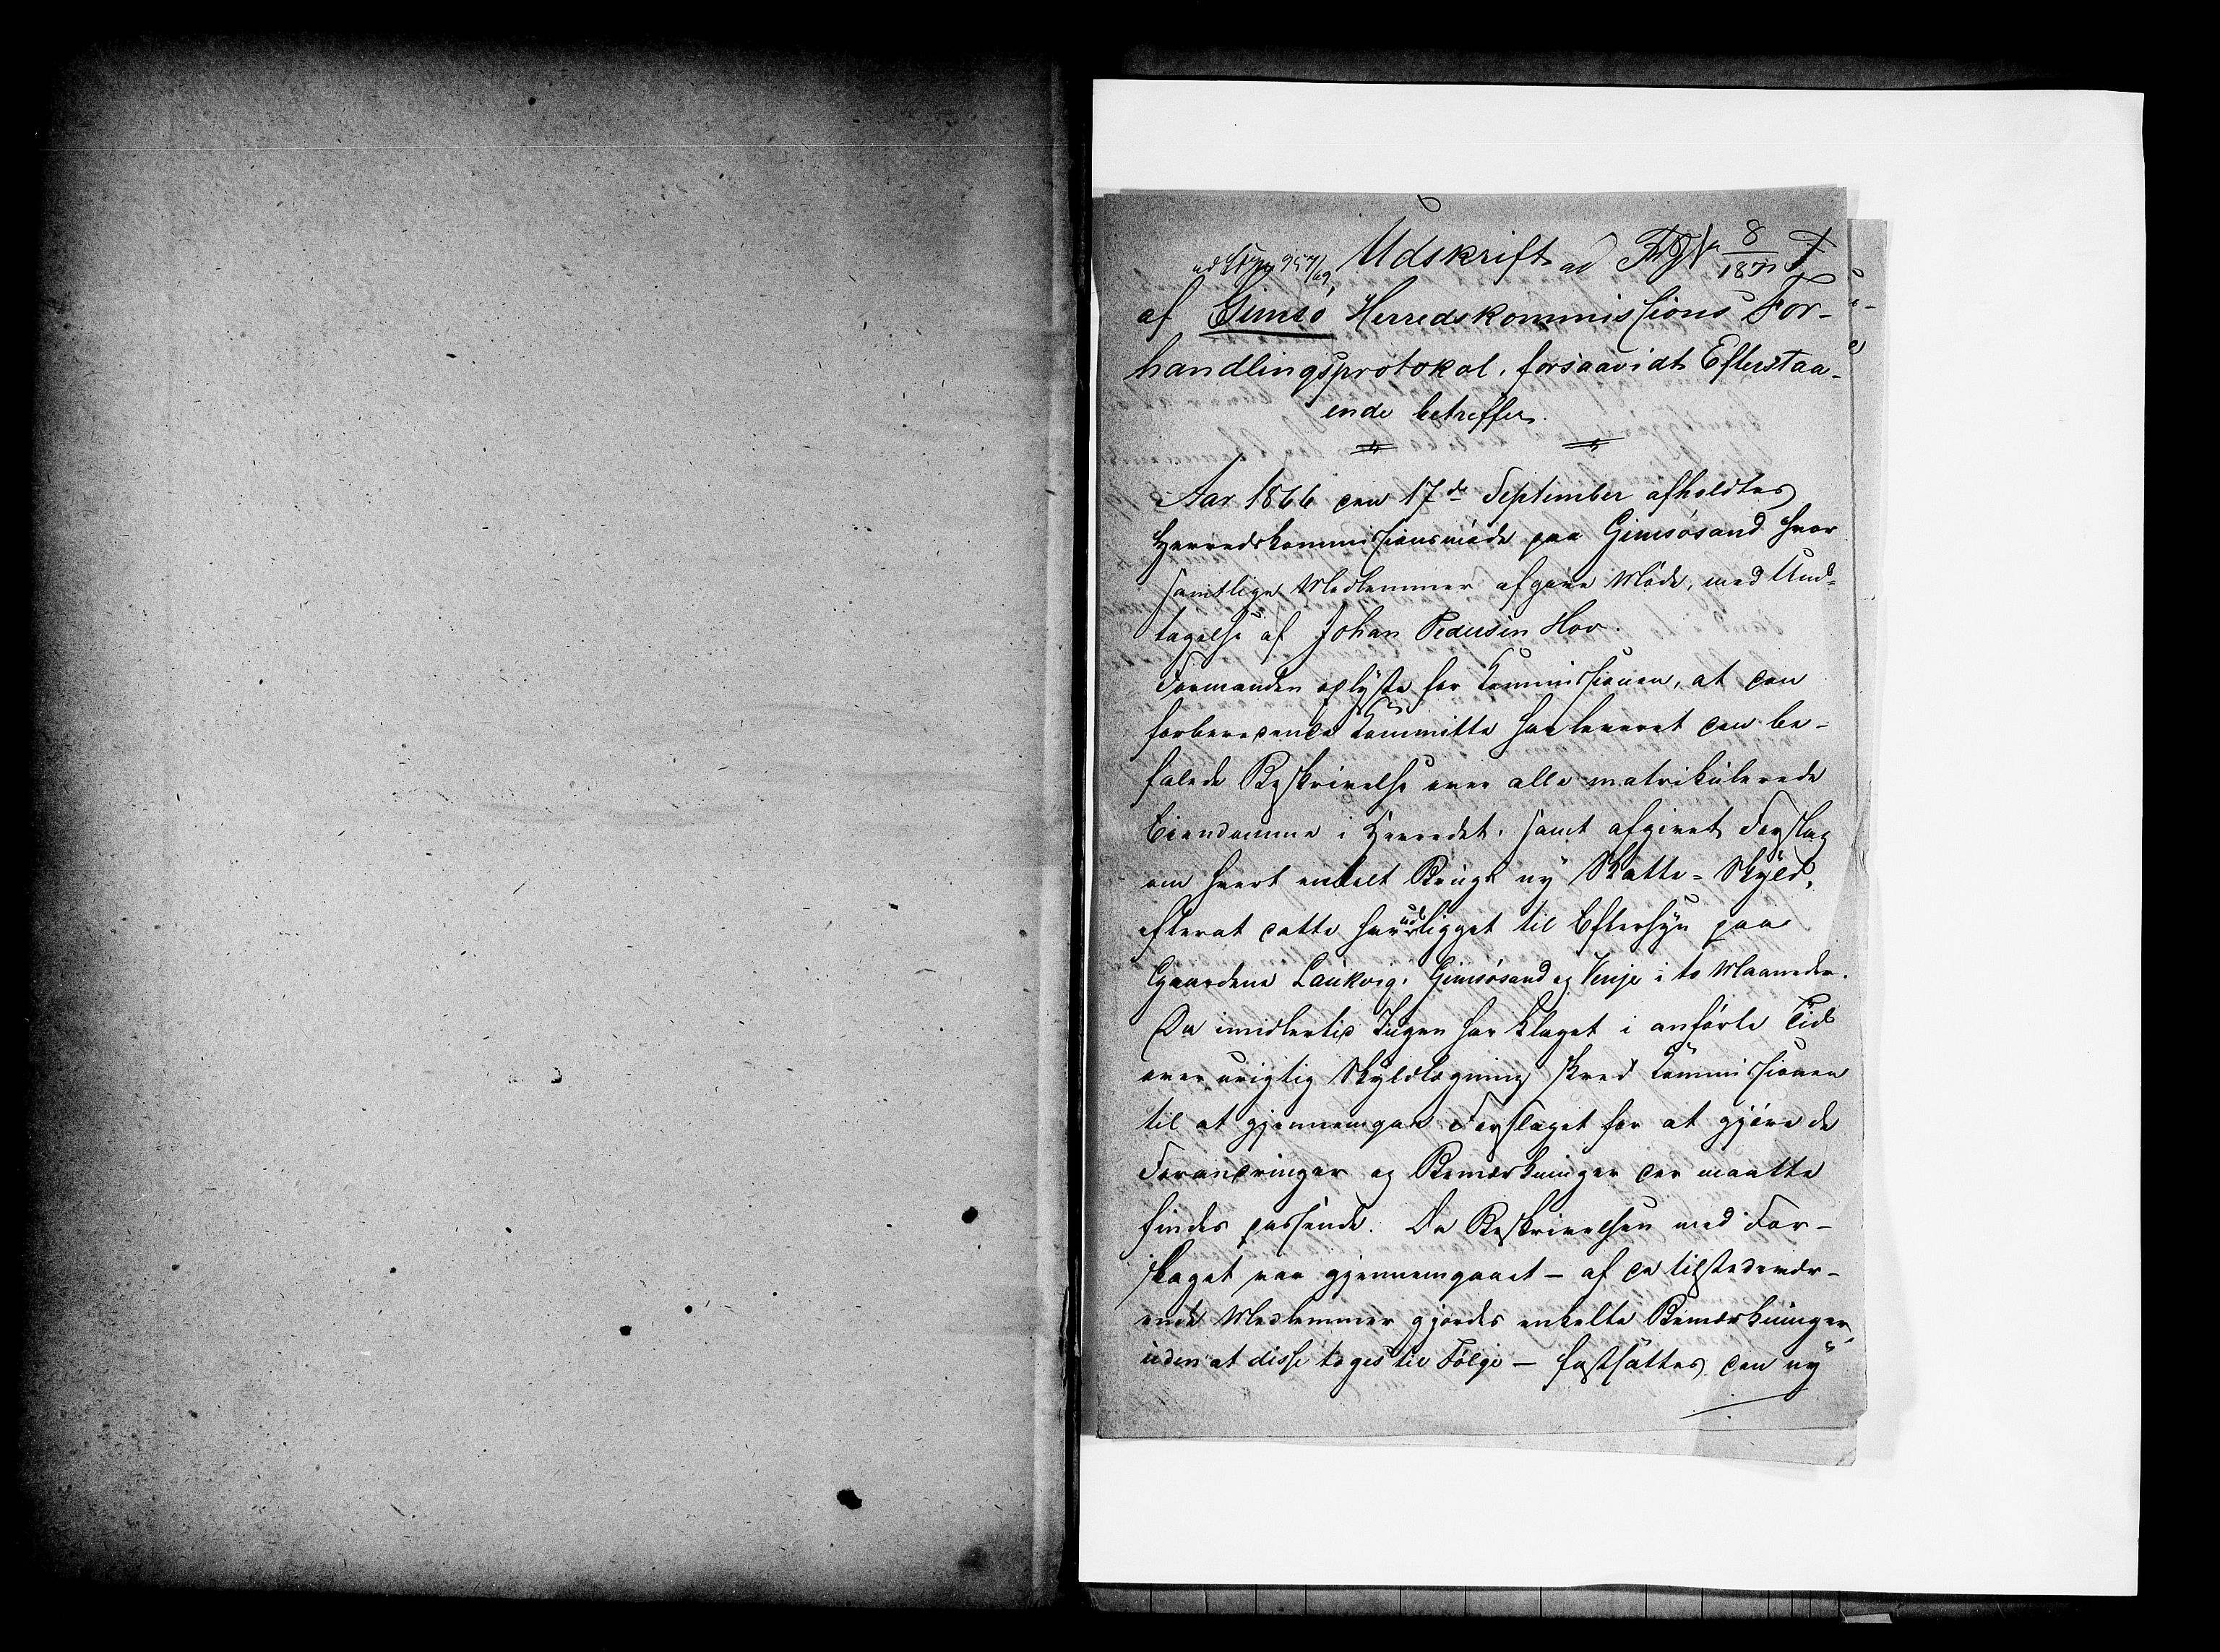 Udskrift ad 8/1871
af Gimsö Herredskommissions For-
handlingsprotokol, forsaavidt Efterstaa-
ende betreffer.
Aar 1866 den 17de September afholdtes
Herredskommissionsmöde paa Gimsösand hvor
samtlige Medlemmer afgave Möde, med Und-
tagelse af Johan Pedersen Hov.
Formanden oplyste for Kommissionen, at den
forberedende Kommitte har leveret den be-
falede Beskrivelse over alle matrikulerede
Eiendomme i Herredet, samt afgivet Forslag
om hvert enkelt Brugs ny Skatte-Skyld,
efterat dette havde udligget til Eftersyn paa
Gaardene Laukvig, Gimsösand og Venje i to Maaneder.
Da imidlertid Ingen har klaget i anförte Tid
over urigtig Skyldlægning skred Kommissionen
til at gjennemgaa Forslaget for at gjöre de
Forandringer og Bemærkninger der maatte
findes passende. Da Beskrivelsen med For-
slaget var gjennemgaaet - af de tilstedevær-
ende Medlemmer gjordes enkelte Bemærkninger,
uden at disse toges til Fölge - fastsattes den ny